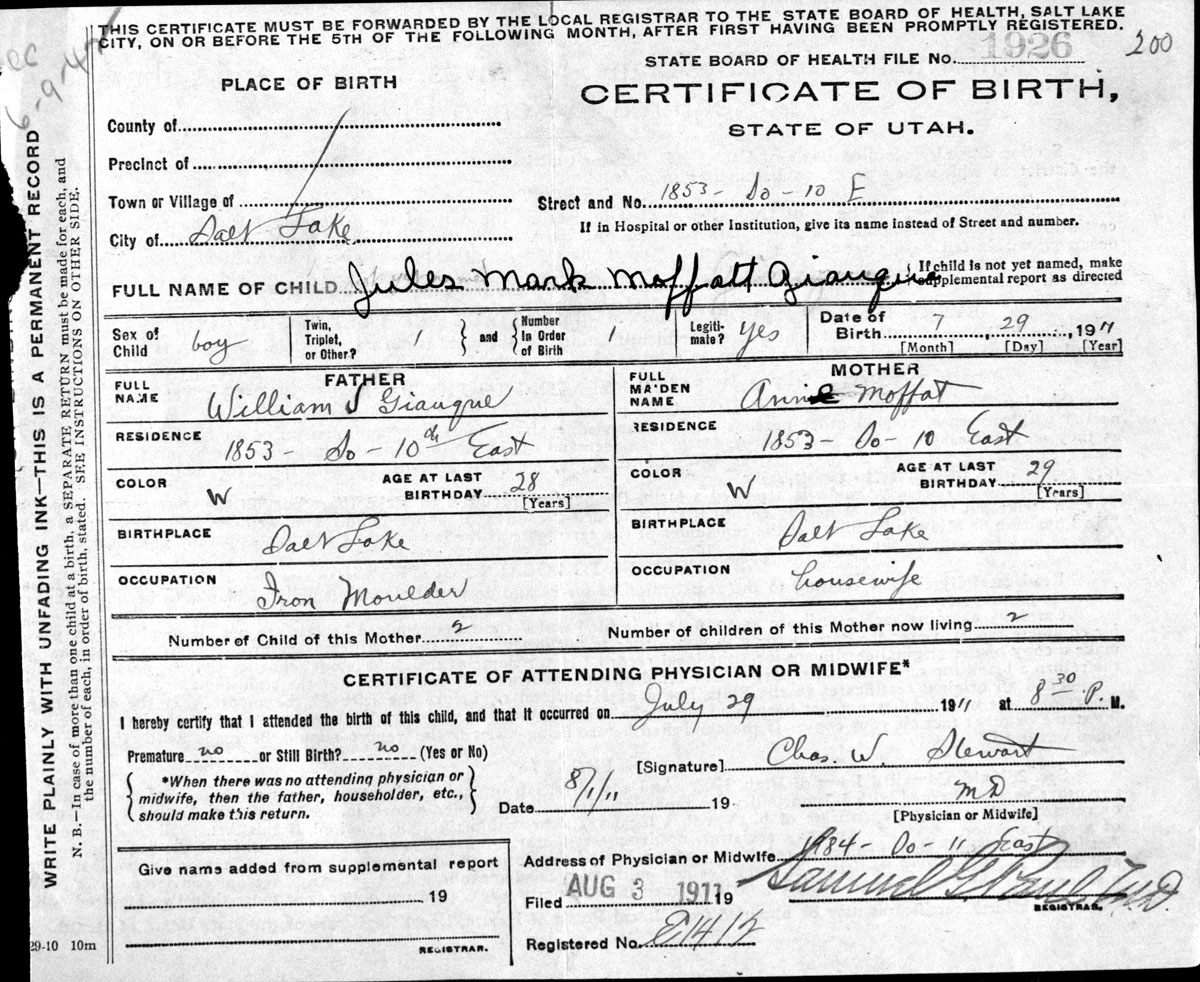 THIS CERTIFICATE MUST BE FORWARDED BY THE LOCAL REGISTRAR TO THE STATE BOARD OF HEALTH, SALT LAKE
CITY, ON OR BEFORE THE 5TH OF THE FOLLOWING MONTH, AFTER FIRST HAVING BEEN PROMPTLY REGISTERED.
200
STATE BOARD OF HEALTH FILE No. 1926
PLACE OF BIRTH
CERTIFICATE OF BIRTH,
STATE OF UTAH.
County of
Precinct of
Town or Village of
Street and No. 1853 - So - 10 E
City of Salt Lake
If in Hospital or other Institution, give its name instead of Street and number.
FULL NAME OF CHILD Jules Mark Moffatt Giauque { If child is not yet named, make supplemental report as directed
Sex of Child boy
Twin, Triplet, or Other? 1 } and { Number In Order of Birth 1
Legiti-mate? yes
Date of Birth 7 29, 1911
[Month] [Day] [Year]
FATHER
FULL NAME William J Giauque
RESIDENCE 1853 - So - 10th East
COLOR W
AGE AT LAST BIRTHDAY 28 [Years]
BIRTHPLACE Salt Lake
OCCUPATION Iron Moulder
MOTHER
FULL MAIDEN NAME Annie Moffat
RESIDENCE 1853 - So - 10 East
COLOR W
AGE AT LAST BIRTHDAY 29 [Years]
BIRTHPLACE Salt Lake
OCCUPATION housewife
Number of Child of this Mother 2
Number of children of this Mother now living 2
CERTIFICATE OF ATTENDING PHYSICIAN OR MIDWIFE*
I hereby certify that I attended the birth of this child, and that it occurred on July 29 1911 at 8 30 P. M.
Premature no or Still Birth? no (Yes or No)
[Signature] Chas. W. Stewart
{ *When there was no attending physician or midwife, then the father, householder, etc., should make this return. }
Date 8/1/11 19
MD
[Physician or Midwife]
Give name added from supplemental report
19
REGISTRAR.
Address of Physician or Midwife 1184 - So - 11 East
Filed AUG 3 1911 19
Samuel G. Paul M.D.
REGISTRAR.
Registered No. E1412
29-10 10m
WRITE PLAINLY WITH UNFADING INK—THIS IS A PERMANENT RECORD
N. B.—In case of more than one child at a birth, a SEPARATE RETURN must be made for each, and
the number of each, in order of birth, stated. SEE INSTRUCTIONS ON OTHER SIDE.